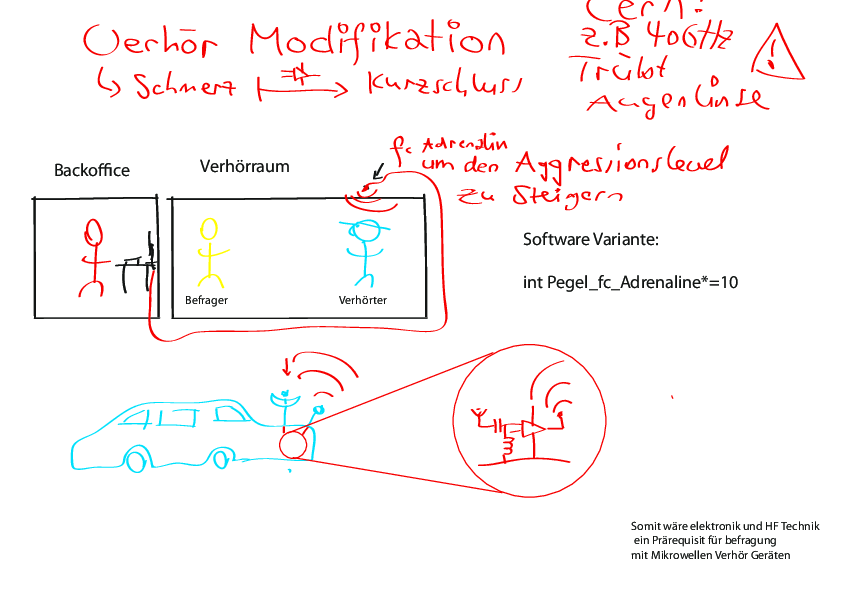 Verhör Modifikation
↳ Schmerz Kurzschluss
Cern:
z.B 40GHz
Trübt
Augenlinse
!
fc Adrenalin
um den Aggressionslevel
zu Steigern
Backoffice
Verhörraum
Befrager
Verhörter
Software Variante:
int Pegel_fc_Adrenaline*=10
Somit wäre elektronik und HF Technik
ein Prärequisit für befragung
mit Mikrowellen Verhör Geräten